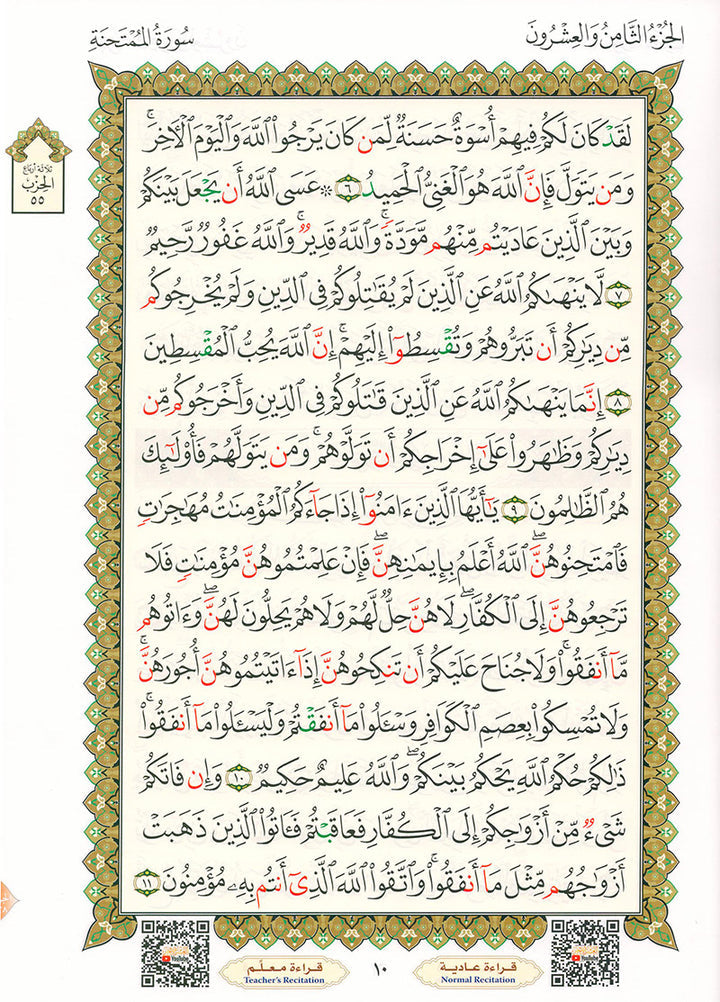 الجُزْءُ الثَّامِنُ وَالعِشْرُونَ
سُورَةُ المُمْتَحنَةِ
ثلاثة أرباع
الحِزْب
٥٥
لَقَدْ كَانَ لَكُمْ فِيهِمْ أُسْوَةٌ حَسَنَةٌ لِّمَن كَانَ يَرْجُوا۟ ٱللَّهَ وَٱلْيَوْمَ ٱلْـَٔاخِرَ ۚ
وَمَن يَتَوَلَّ فَإِنَّ ٱللَّهَ هُوَ ٱلْغَنِىُّ ٱلْحَمِيدُ ٦ ۞ عَسَى ٱللَّهُ أَن يَجْعَلَ بَيْنَكُمْ
وَبَيْنَ ٱلَّذِينَ عَادَيْتُم مِّنْهُم مَّوَدَّةً ۚ وَٱللَّهُ قَدِيرٌ ۚ وَٱللَّهُ غَفُورٌ رَّحِيمٌ
٧ لَّا يَنْهَىٰكُمُ ٱللَّهُ عَنِ ٱلَّذِينَ لَمْ يُقَـٰتِلُوكُمْ فِى ٱلدِّينِ وَلَمْ يُخْرِجُوكُم
مِّن دِيَـٰرِكُمْ أَن تَبَرُّوهُمْ وَتُقْسِطُوٓا۟ إِلَيْهِمْ ۚ إِنَّ ٱللَّهَ يُحِبُّ ٱلْمُقْسِطِينَ
٨ إِنَّمَا يَنْهَىٰكُمُ ٱللَّهُ عَنِ ٱلَّذِينَ قَـٰتَلُوكُمْ فِى ٱلدِّينِ وَأَخْرَجُوكُم مِّن
دِيَـٰرِكُمْ وَظَـٰهَرُوا۟ عَلَىٰٓ إِخْرَاجِكُمْ أَن تَوَلَّوْهُمْ ۚ وَمَن يَتَوَلَّهُمْ فَأُو۟لَـٰٓئِكَ
هُمُ ٱلظَّـٰلِمُونَ ٩ يَـٰٓأَيُّهَا ٱلَّذِينَ ءَامَنُوٓا۟ إِذَا جَآءَكُمُ ٱلْمُؤْمِنَـٰتُ مُهَـٰجِرَٰتٍ
فَٱمْتَحِنُوهُنَّ ۖ ٱللَّهُ أَعْلَمُ بِإِيمَـٰنِهِنَّ ۖ فَإِنْ عَلِمْتُمُوهُنَّ مُؤْمِنَـٰتٍ فَلَا
تَرْجِعُوهُنَّ إِلَى ٱلْكُفَّارِ ۖ لَا هُنَّ حِلٌّ لَّهُمْ وَلَا هُمْ يَحِلُّونَ لَهُنَّ ۖ وَءَاتُوهُم
مَّآ أَنفَقُوا۟ ۚ وَلَا جُنَاحَ عَلَيْكُمْ أَن تَنكِحُوهُنَّ إِذَآ ءَاتَيْتُمُوهُنَّ أُجُورَهُنَّ ۚ
وَلَا تُمْسِكُوا۟ بِعِصَمِ ٱلْكَوَافِرِ وَسْـَٔلُوا۟ مَآ أَنفَقْتُمْ وَلْيَسْـَٔلُوا۟ مَآ أَنفَقُوا۟ ۚ
ذَٰلِكُمْ حُكْمُ ٱللَّهِ يَحْكُمُ بَيْنَكُمْ ۖ وَٱللَّهُ عَلِيمٌ حَكِيمٌ ١٠ وَإِن فَاتَكُمْ
شَىْءٌ مِّنْ أَزْوَٰجِكُمْ إِلَى ٱلْكُفَّارِ فَعَاقَبْتُمْ فَـَٔاتُوا۟ ٱلَّذِينَ ذَهَبَتْ
أَزْوَٰجُهُم مِّثْلَ مَآ أَنفَقُوا۟ ۚ وَٱتَّقُوا۟ ٱللَّهَ ٱلَّذِىٓ أَنتُم بِهِۦ مُؤْمِنُونَ ١١
قراءة عادية
Normal Recitation
١٠
قراءة معلّم
Teacher's Recitation
YouTube
YouTube